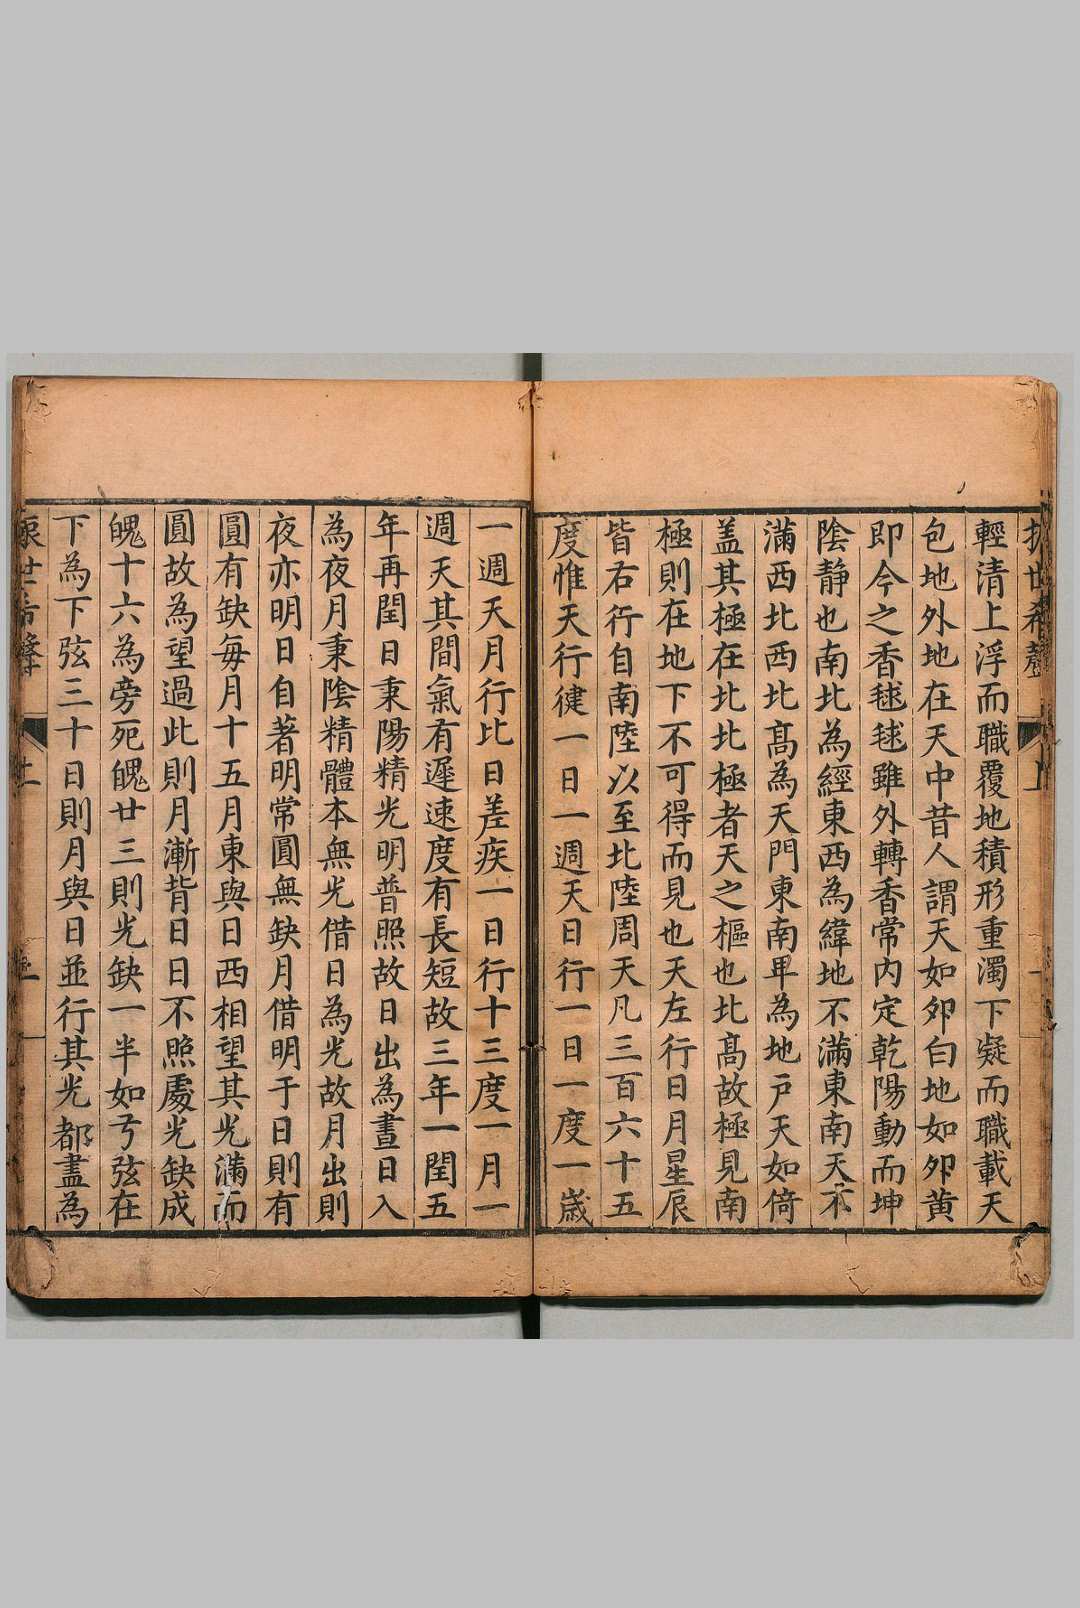 輕清上浮而職覆地積形重濁下凝而職載天
包地外地在天中昔人謂天如夘白地如夘黃
即今之香毬毬雖外轉香常内定乾陽動而坤
陰静也南北為經東西為緯地不滿東南天不
滿西北西北髙為天門東南卑為地户天如倚
盖其極在北北極者天之樞也北髙故極見南
極則在地下不可得而見也天左行日月星辰
皆右行自南陸以至北陸周天凡三百六十五
度惟天行徤一日一週天日行一日一度一歲
一週天月行比日差疾一日行十三度一月一
週天其間氣有遲速度有長短故三年一閏五
年再閏日秉陽精光明普照故日出為晝日入
為夜月秉陰精體本無光借日為光故月出則
夜亦明日自著明常圓無缺月借明于日則有
圓有缺每月十五月東與日西相望其光滿而
圓故為望過此則月漸背日日不照處光缺成
魄十六為旁死魄廿三則光缺一半如弓弦在
下為下弦三十日則月與日並行其光都盡為